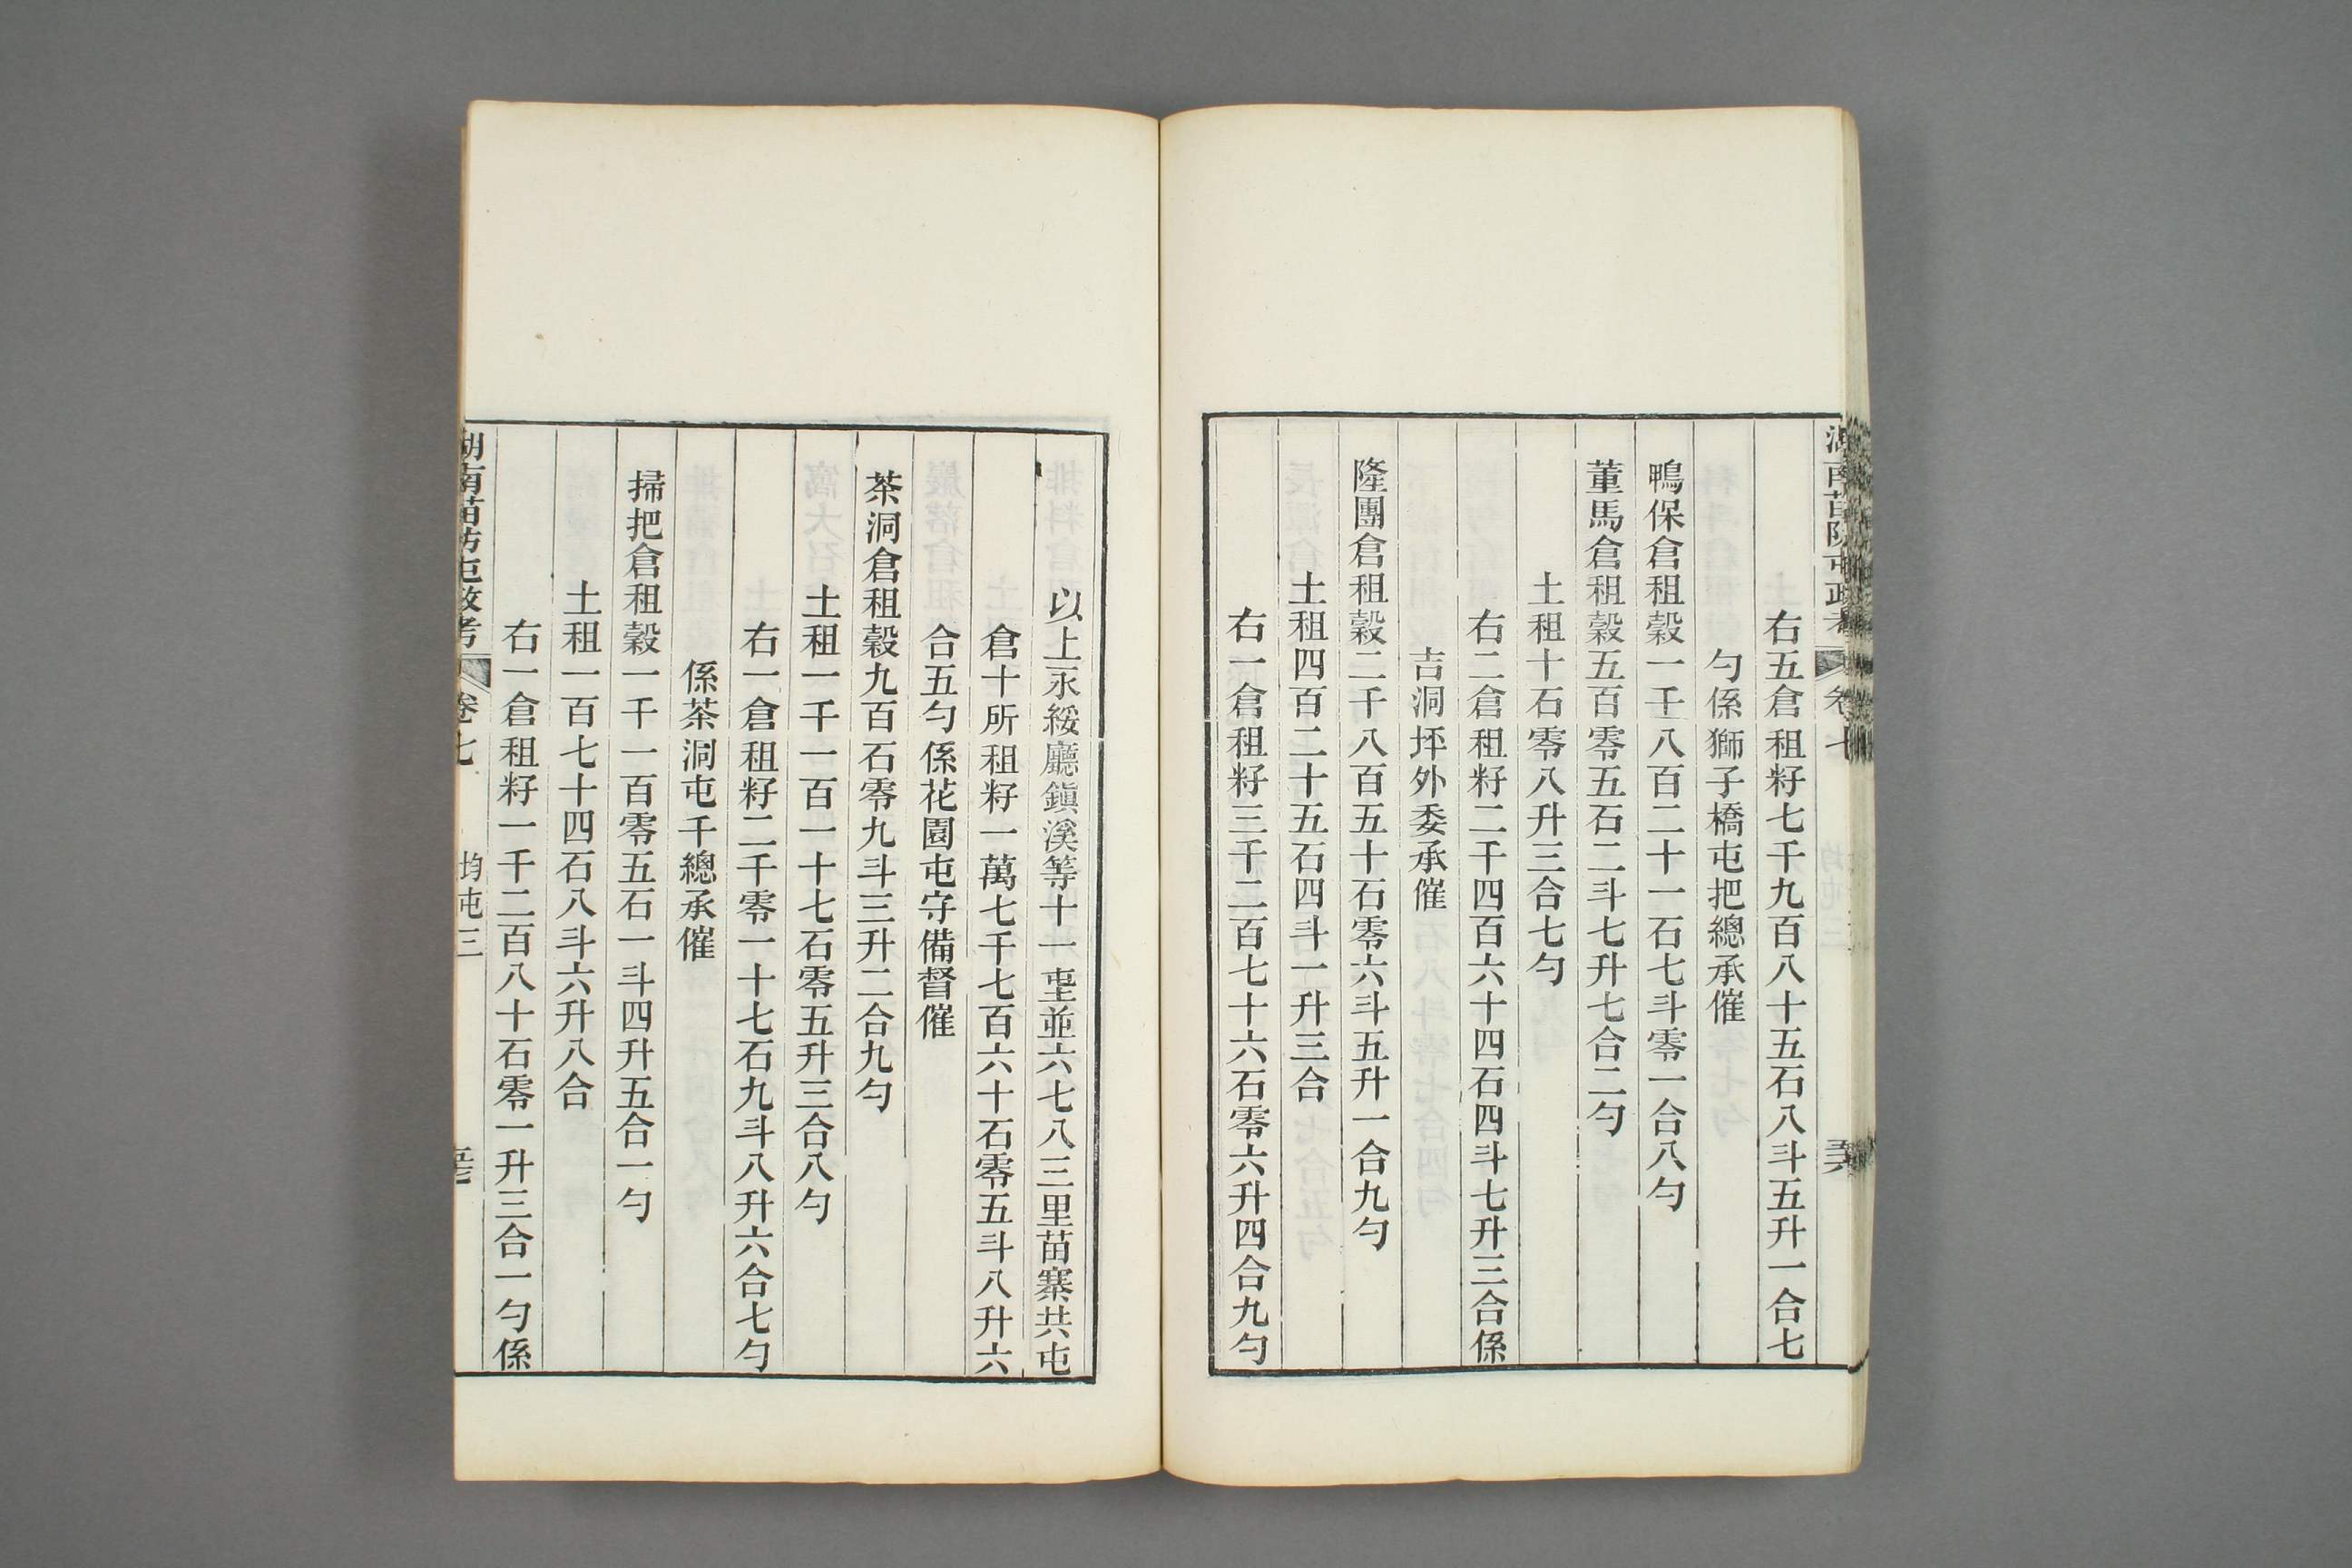 湖南苗防屯政考 卷七
右五倉租籽七千九百八十五石八斗五升一合七
勺係獅子橋屯把總承催
鴨保倉租穀一千八百二十一石七斗零一合八勺
董馬倉租穀五百零五石二斗七升七合二勺
土租十石零八升三合七勺
右二倉租籽二千四百六十四石四斗七升三合係
吉洞坪外委承催
隆團倉租穀二千八百五十石零六斗五升一合九勺
土租四百二十五石四斗一升三合
右一倉租籽三千二百七十六石零六升四合九勺
以上永綏廳鎮溪等十一里並六七八三里苗寨共屯
倉十所租籽一萬七千七百六十石零五斗八升六
合五勺係花園屯守備督催
茶洞倉租穀九百石零九斗三升二合九勺
土租一千一百一十七石零五升三合八勺
右一倉租籽二千零一十七石九斗八升六合七勺
係茶洞屯千總承催
掃把倉租穀一千一百零五石一斗四升五合一勺
土租一百七十四石八斗六升八合
右一倉租籽一千二百八十石零一升三合一勺係
湖南苗防屯政考 卷七 均屯三